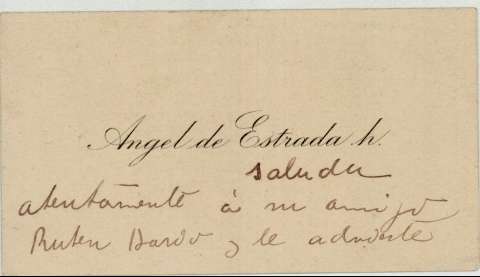 Angel de Estrada h.
saluda
atentamente á su amigo
Ruben Dario y le advierte